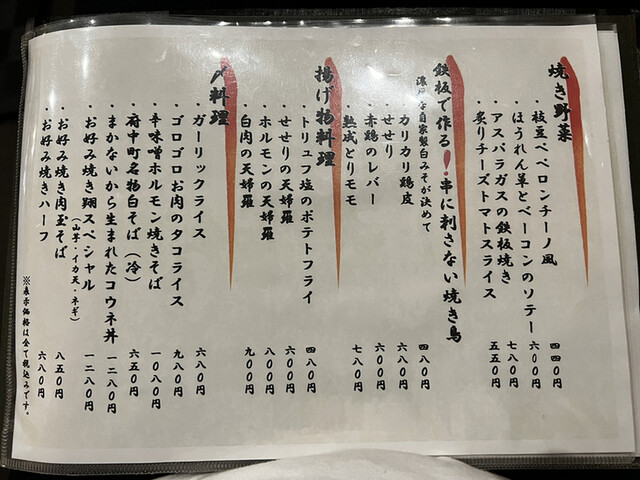 焼き野菜
・枝豆ペペロンチーノ風 四四〇円
・ほうれん草とベーコンのソテー 六〇〇円
・アスパラガスの鉄板焼き 七八〇円
・炙りチーズトマトスライス 五五〇円
鉄板で作る!串に刺さない焼き鳥
濃厚な自家製白みそが決めて
・カリカリ鶏皮 四八〇円
・せせり 六八〇円
・赤鶏のレバー 六〇〇円
・熟成とりモモ 七八〇円
揚げ物料理
・トリュフ塩のポテトフライ 四八〇円
・せせりの天婦羅 六〇〇円
・ホルモンの天婦羅 八〇〇円
・白肉の天婦羅 九〇〇円
〆料理
・ガーリックライス 六八〇円
・ゴロゴロお肉のタコライス 九八〇円
・辛味噌ホルモン焼きそば 一〇八〇円
・府中町名物白そば(冷) 六五〇円
・まかないから生まれたコウネ丼 一二八〇円
・お好み焼き翔スペシャル 一二八〇円
(山芋・イカ天・ネギ)
・お好み焼き肉玉そば 八五〇円
・お好み焼きハーフ 六八〇円
※表示価格は全て税込みです。